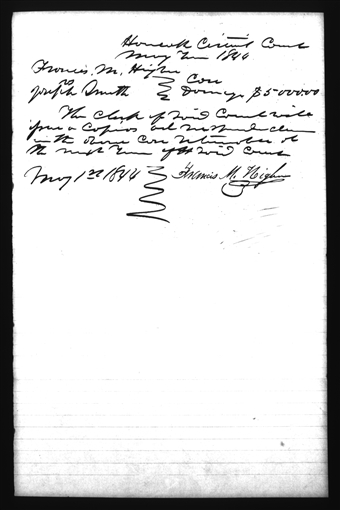 Hancock Circuit Court
May Term 1844
Francis M. Higbee
Case
Joseph Smith Damage $5000.00
The clerk of said Court will
issue a Capias ad Respondendum
in the above Case Returnable at
the next Term of said Court
May 1st 1844 Francis M. Higbee